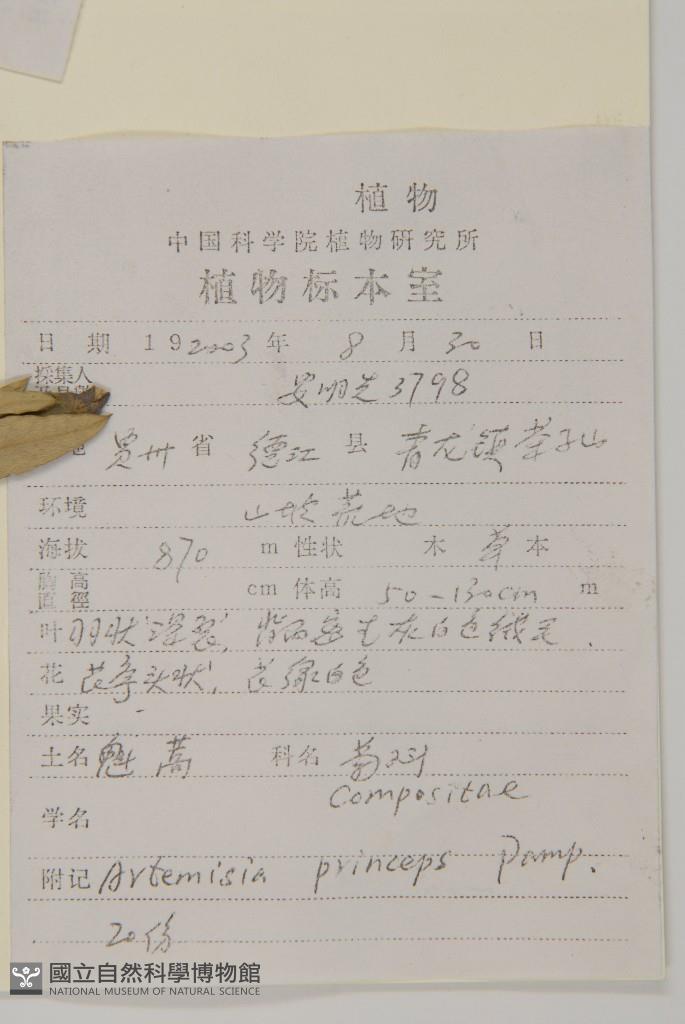 植物
中国科学院植物研究所
植物标本室
日期 19 2003 年 8 月 30 日
採集人 安明先 3798
贵州 省 德江 县 青龙镇
环境 山坡荒地
海拔 870 m 性状 木 草 本
胸高直徑 cm 体高 50-130cm m
叶 羽状深裂, 背面密生灰白色绒毛.
花 花序头状, 花绿白色
果实 -
土名 魁蒿 科名 菊科
Compositae
学名
附记 Artemisia princeps Pamp.
20份
國立自然科學博物館
NATIONAL MUSEUM OF NATURAL SCIENCE